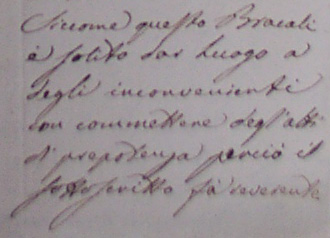 Siccome questo Bracali
è solito dar luogo a
degli inconvenienti
con commettere degl'atti
di prepotenza perciò il
sottoscritto fà reverente